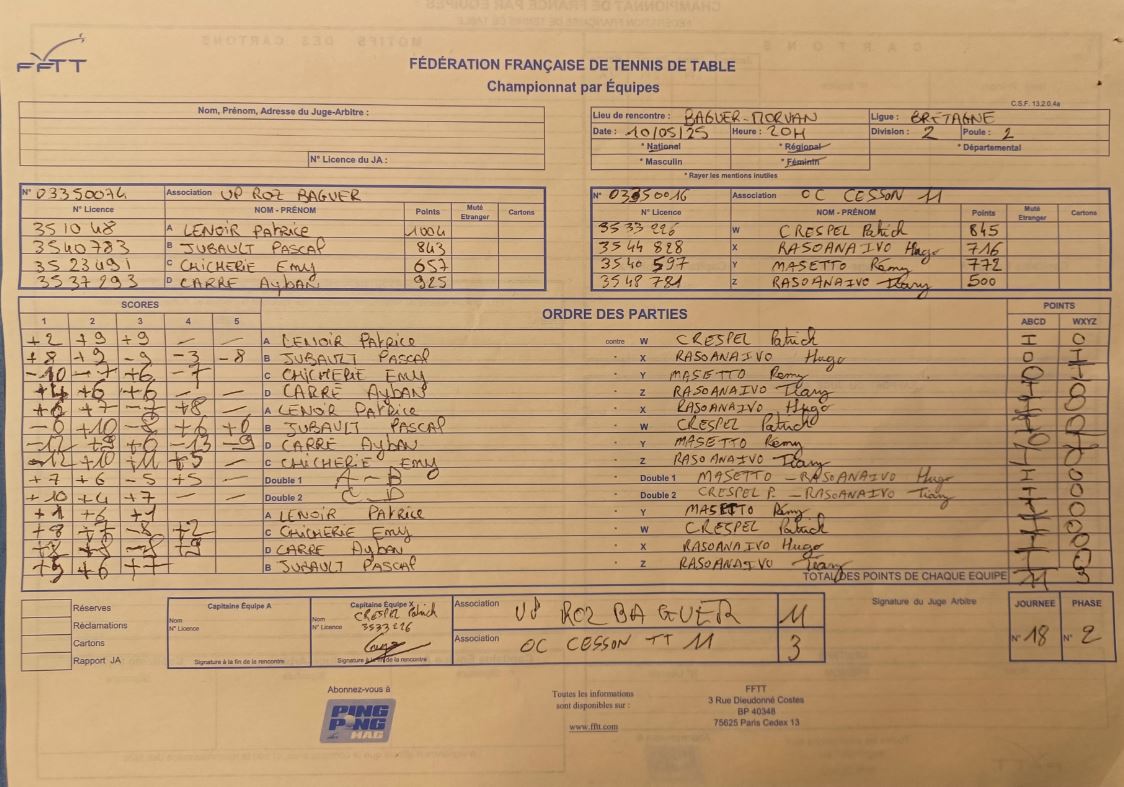 FFTT
FÉDÉRATION FRANÇAISE DE TENNIS DE TABLE
Championnat par Équipes
C.S.F. 13.2.0.4a
Nom, Prénom, Adresse du Juge-Arbitre :
N° Licence du JA :
Lieu de rencontre : BAGUER-MORVAN Ligue : BRETAGNE
Date : 10/05/25 Heure : 20H Division : 2 Poule : 2
* National * Régional * Départemental
* Masculin * Féminin
* Rayer les mentions inutiles
N° 03350074 Association UP ROZ BAGUER
N° Licence NOM - PRÉNOM Points Muté Etranger Cartons
351048 A LENOIR Patrice 1004
3540783 B JUBAULT PASCAL 843
3523491 C CHICHERIE Emy 657
3537293 D CARRE Ayban 925
N° 03350016 Association OC CESSON 11
N° Licence NOM - PRÉNOM Points Muté Etranger Cartons
3533226 W CRESPEL Patrick 845
3544828 X RASOANAIVO Hugo 716
3540597 Y MASETTO Rémy 772
3548781 Z RASOANAIVO Tiany 500
SCORES ORDRE DES PARTIES POINTS
1 2 3 4 5 ABCD WXYZ
+2 +9 +9 — — A LENOIR Patrice contre W CRESPEL Patrick I 0
+8 +9 -9 -3 -8 B JUBAULT PASCAL " X RASOANAIVO Hugo 0 I
-10 -7 +6 -7 C CHICHERIE Emy " Y MASETTO Rémy
+4 +6 +6 — — D CARRE AYBAN " Z RASOANAIVO Tiany
+6 +7 -7 +8 — A LENOIR Patrice " X RASOANAIVO Hugo
+10 -8 +6 +6 B JUBAULT PASCAL " W CRESPEL Patrick
-12 +9 +6 -13 -9 D CARRE Ayban " Y MASETTO Rémy
-12 +10 +11 +5 — C CHICHERIE Emy " Z RASOANAIVO Tiany
+7 +6 -5 +5 — Double 1 A-B " Double 1 MASETTO - RASOANAIVO Hugo I 0
+10 +4 +7 — — Double 2 C-D " Double 2 CRESPEL P. - RASOANAIVO Tiany I 0
+1 +6 +1 A LENOIR Patrice " Y MASETTO Rémy
+8 +7 -8 +2 C CHICHERIE Emy " W CRESPEL Patrick
+8 -8 +9 D CARRE Ayban " X RASOANAIVO Hugo
+9 +6 +7 B JUBAULT PASCAL " Z RASOANAIVO Tiany
TOTAL DES POINTS DE CHAQUE EQUIPE 11 3
Réserves
Réclamations
Cartons
Rapport JA
Capitaine Equipe A
Nom
N° Licence
Signature à la fin de la rencontre
Capitaine Equipe X
Nom CRESPEL Patrick
N° Licence 3533226
Signature à la fin de la rencontre
Association UP ROZ BAGUER 11
Association OC CESSON TT 11 3
Signature du Juge Arbitre
JOURNEE PHASE
N° 18 N° 2
Abonnez-vous à
PING PONG MAG
Toutes les informations
sont disponibles sur :
www.fftt.com
FFTT
3 Rue Dieudonné Costes
BP 40348
75625 Paris Cedex 13